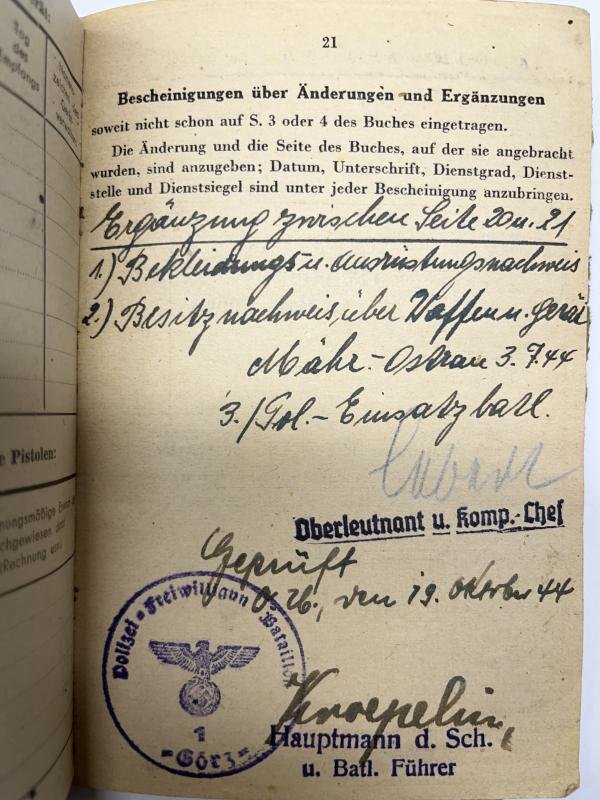 rät:
Tag
des
Empfangs
21
Bescheinigungen über Änderungen und Ergänzungen
soweit nicht schon auf S. 3 oder 4 des Buches eingetragen.
Die Änderung und die Seite des Buches, auf der sie angebracht
wurden, sind anzugeben; Datum, Unterschrift, Dienstgrad, Dienst-
stelle und Dienstsiegel sind unter jeder Bescheinigung anzubringen.
Ergänzung zwischen Seite 20 u. 21
1.) Bekleidungs u. Ausrüstungsnachweis
2.) Besitznachweis über Waffen u. Gerät
Mähr.-Ostrau 3.7.44
3./Pol.-Einsatzbatl.
Oberleutnant u. Komp.-Chef
e Pistolen:
Geprüft
O.U., den 19. Oktober 44
Polizei-Freiwilligen Bataillon
1
-Görz-
Kroepelin,
Hauptmann d. Sch.
u. Batl. Führer